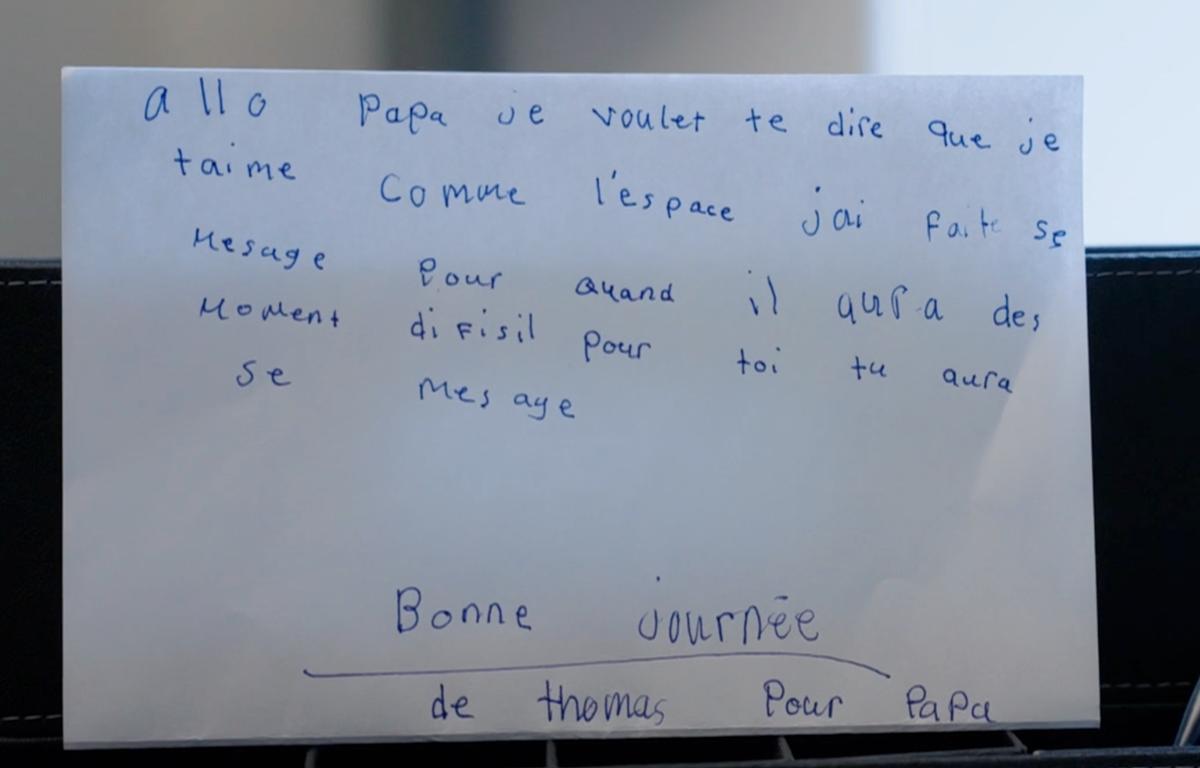 allo Papa je voulet te dire que je
taime Comme l'espace jai faite se
Mesage Pour quand il aura des
Moment difisil Pour toi tu aura
se Mesage
Bonne journée
de thomas Pour Papa